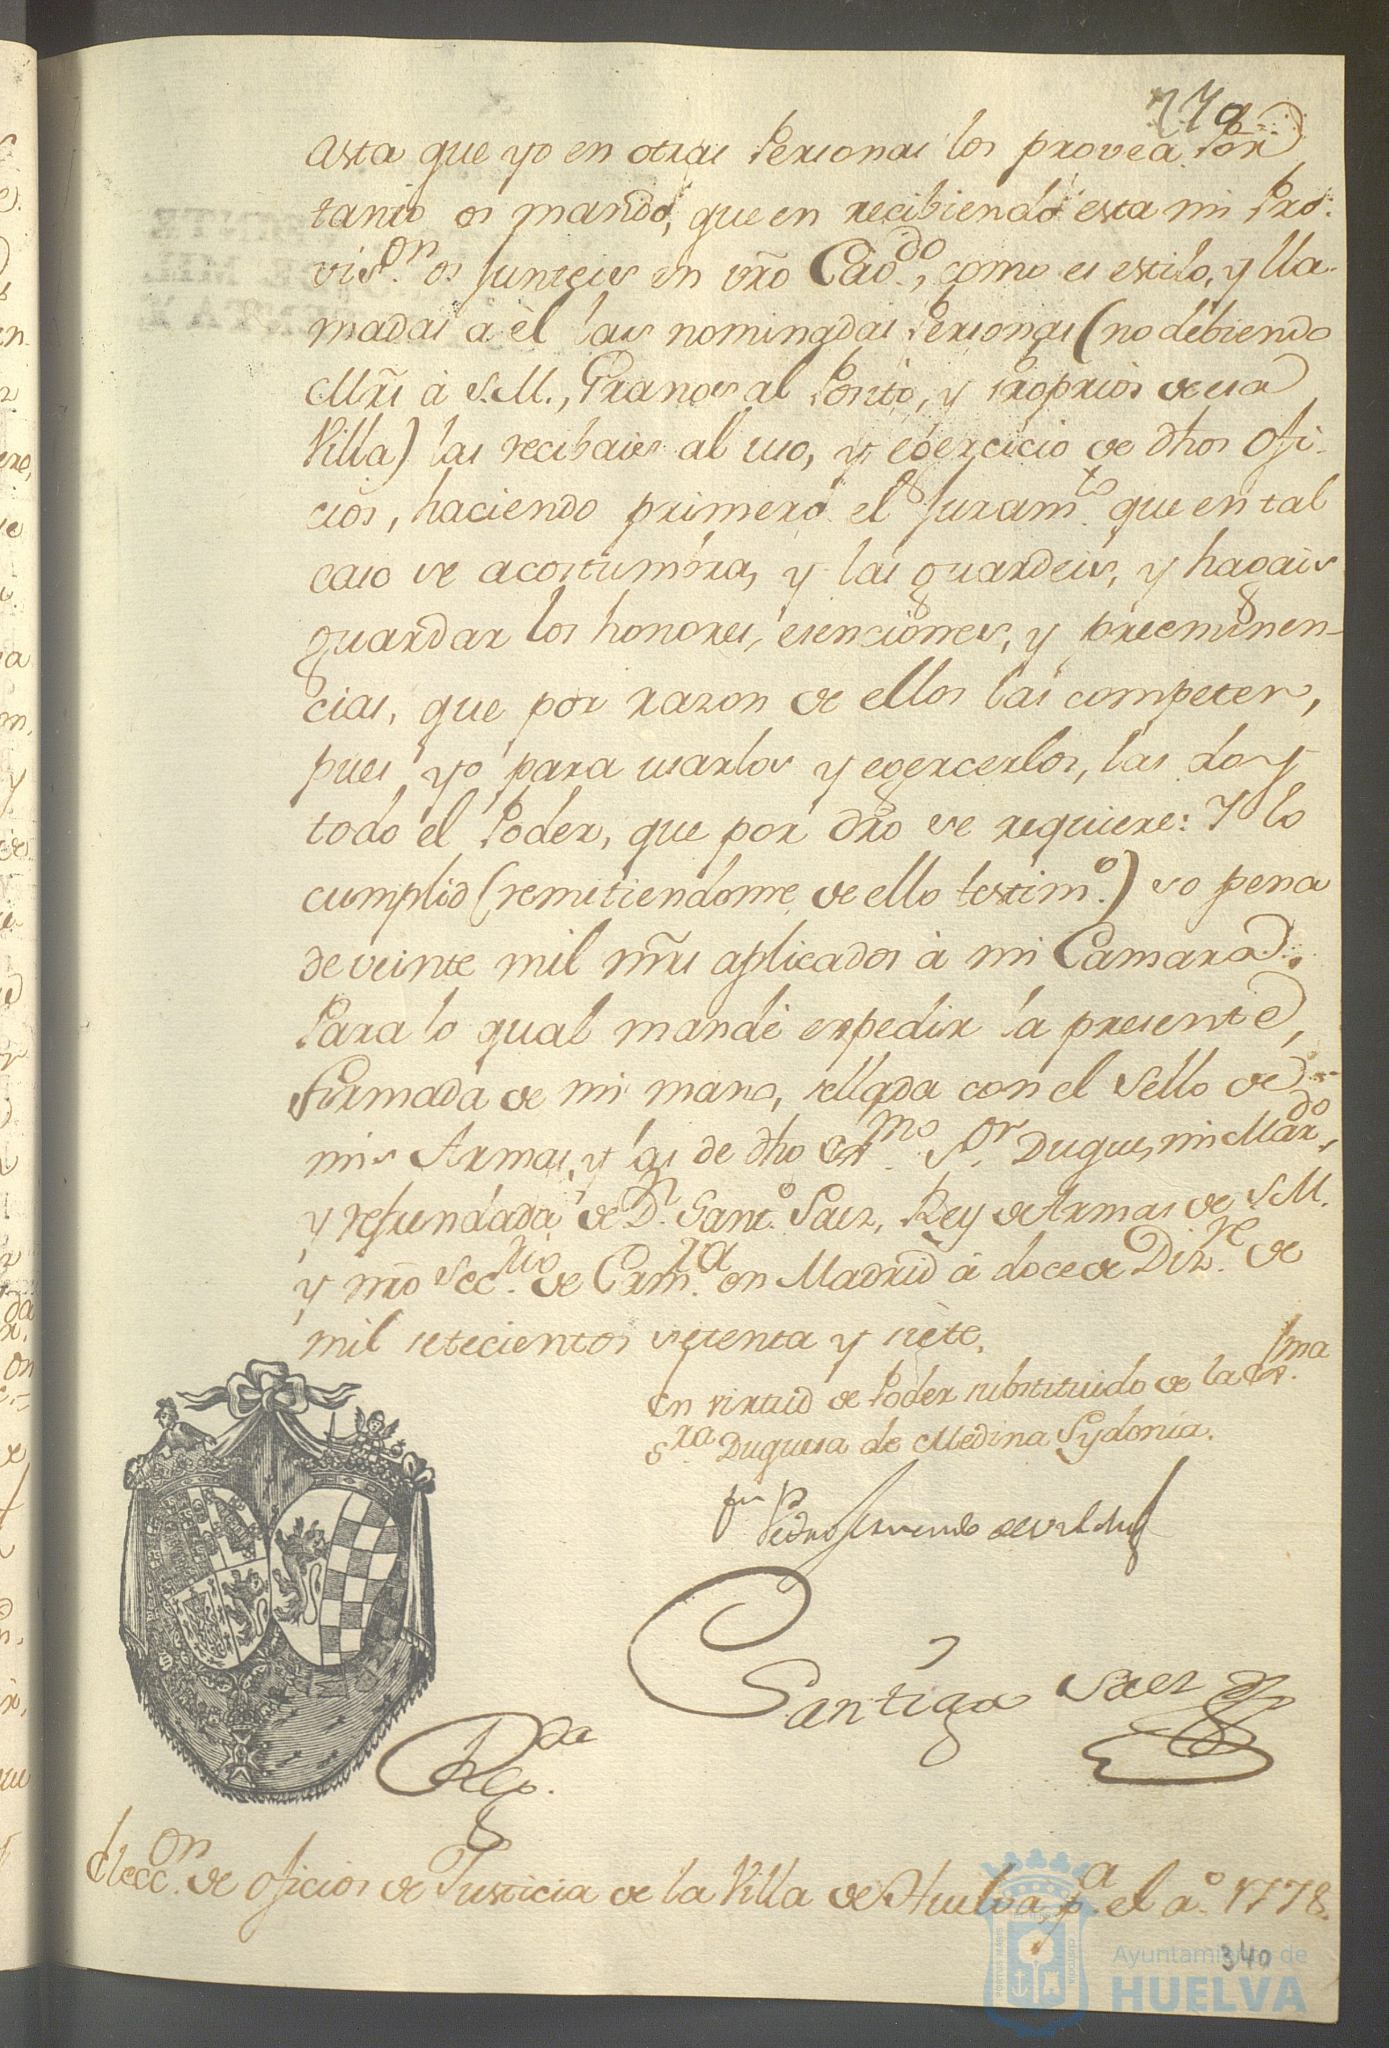 asta que yo en otras Personas los provea. Por
tanto os mando, que en recibiendo esta mi Pro-
vis.on os Junteis en vro Cavdo., como es estilo, y lla-
madas a èl las nominadas Personas (no debiendo
Mrs à S.M., Granos al Posito, y Proprios de esa
Villa) las recibais al uso, y egercicio de dhos Ofi-
cios, haciendo primero el Juram.to que en tal
caso se acostumbra, y las guardeis, y hagais
guardar los honores, esenciones, y preeminen-
cias, que por razon de ellos las competen,
pues yo para usarlos y egercerlos, las doy
todo el Poder, que por dro se requiere: Y lo
cumplid (remitiendome de ello testim.o) so pena
de veinte mil mrs aplicados à mi Camara.
Para lo qual mandè expedir la presente,
firmada de mi mano, sellada con el Sello de
mis Armas, y las de dho Exmo. S.or Duque, mi Mar.do,
y refrendada de D.n Sant.o Saez, Rey de Armas de S.M.
y nro Sec.rio de Cam.ra en Madrid à doce de Diz.re de
mil setecientos setenta y siete.
En virtud de Poder substituido de la Ex.ma
S.ra Duquesa de Medina Sydonia.
Pedro
Santiago Saez
Reg.da
Elecc.on de oficios de Justicia de la Villa de Huelva, p.a el a.o 1778.
340
Ayuntamiento de
HUELVA